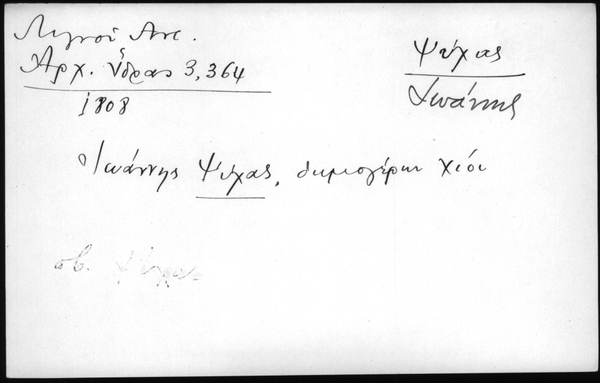 Λιγνοῦ Ἀντ.
Ἀρχ. Ὕδρας 3, 364
1808
Ψύχας
Ἰωάννης
Ἰωάννης Ψύχας, δημογέρων Χίου
σβ. Ψύχας